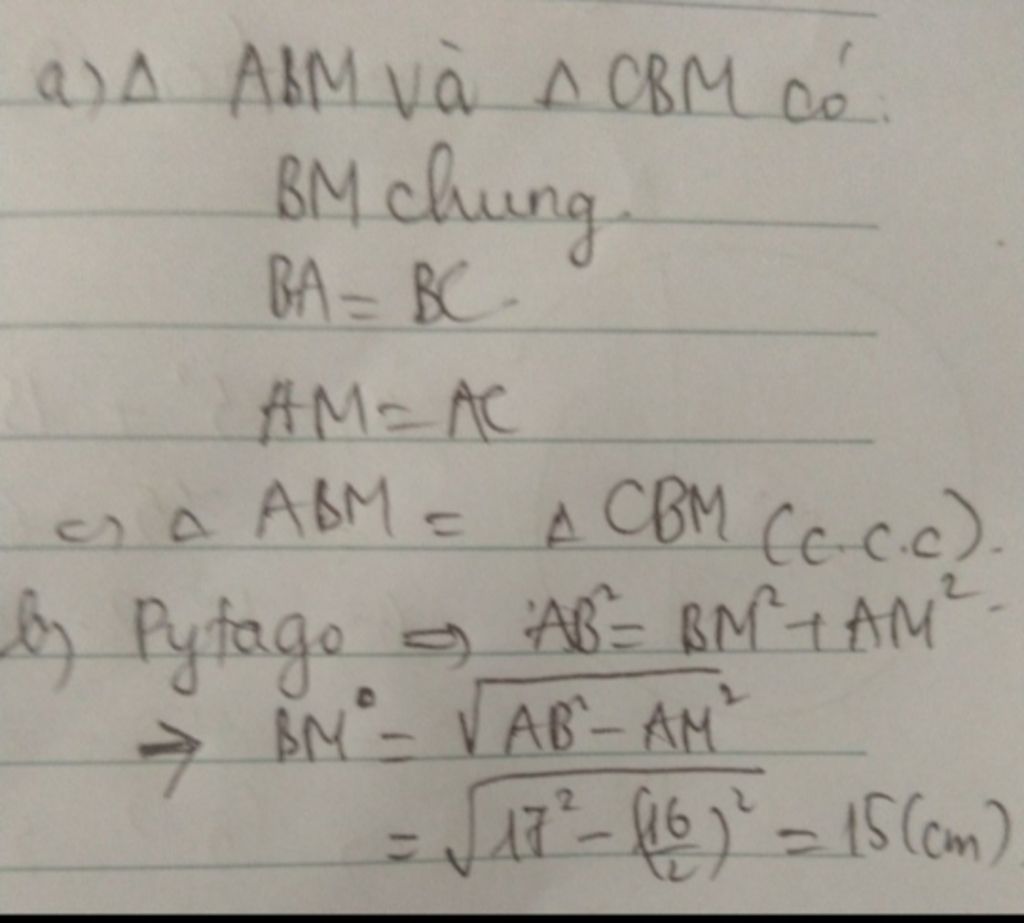 a) Δ ABM và Δ CBM có:
BM chung.
BA = BC.
AM = AC
=> Δ ABM = Δ CBM (c.c.c).
b) Pytago => AB² = BM² + AM²
→ BM = √(AB² - AM²)
= √(17² - (16/2)²) = 15 (cm)